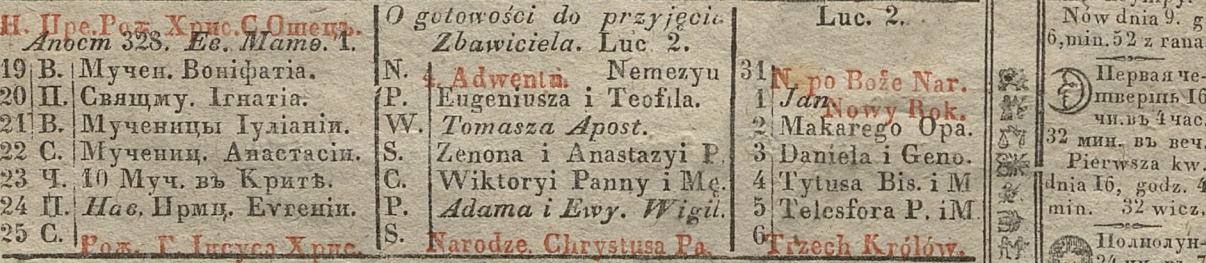 Н. Пре.Рож. Хрис.С.Отецъ.
Апост 328. Ев. Матѳ. 1.
19 В. Мучен. Воніфатіа.
20 П. Свящму. Ігнатіа.
21 В. Мученицы Іуліаніи.
22 С. Мучениц. Анастасіи.
23 Ч. 10 Муч. въ Критѣ.
24 П. Нав. Прмц. Евгеніи.
25 С. Рож. Г. Іисуса Хрис.
O gotowości do przyjęcia
Zbawiciela. Luc 2.
N. 4. Adwentu. Nemezyu
P. Eugeniusza i Teofila.
W. Tomasza Apost.
S. Zenona i Anastazyi P.
C. Wiktoryi Panny i Mę.
P. Adama i Ewy. Wigil.
S. Narodze. Chrystusa Pa.
Luc. 2.
31 N. po Boże Nar.
1 Jan Nowy Rok.
2 Makarego Opa.
3 Daniela i Geno.
4 Tytusa Bis. i M
5 Telesfora P. i M
6 Trzech Królów.
Nów dnia 9. g
6, min. 52 z rana
Первая че-
тверть 16
чи. въ 4 час.
32 мин. въ веч.
Pierwsza kw.
dnia 16, godz. 4
min. 32 wicz.
Полнолун-